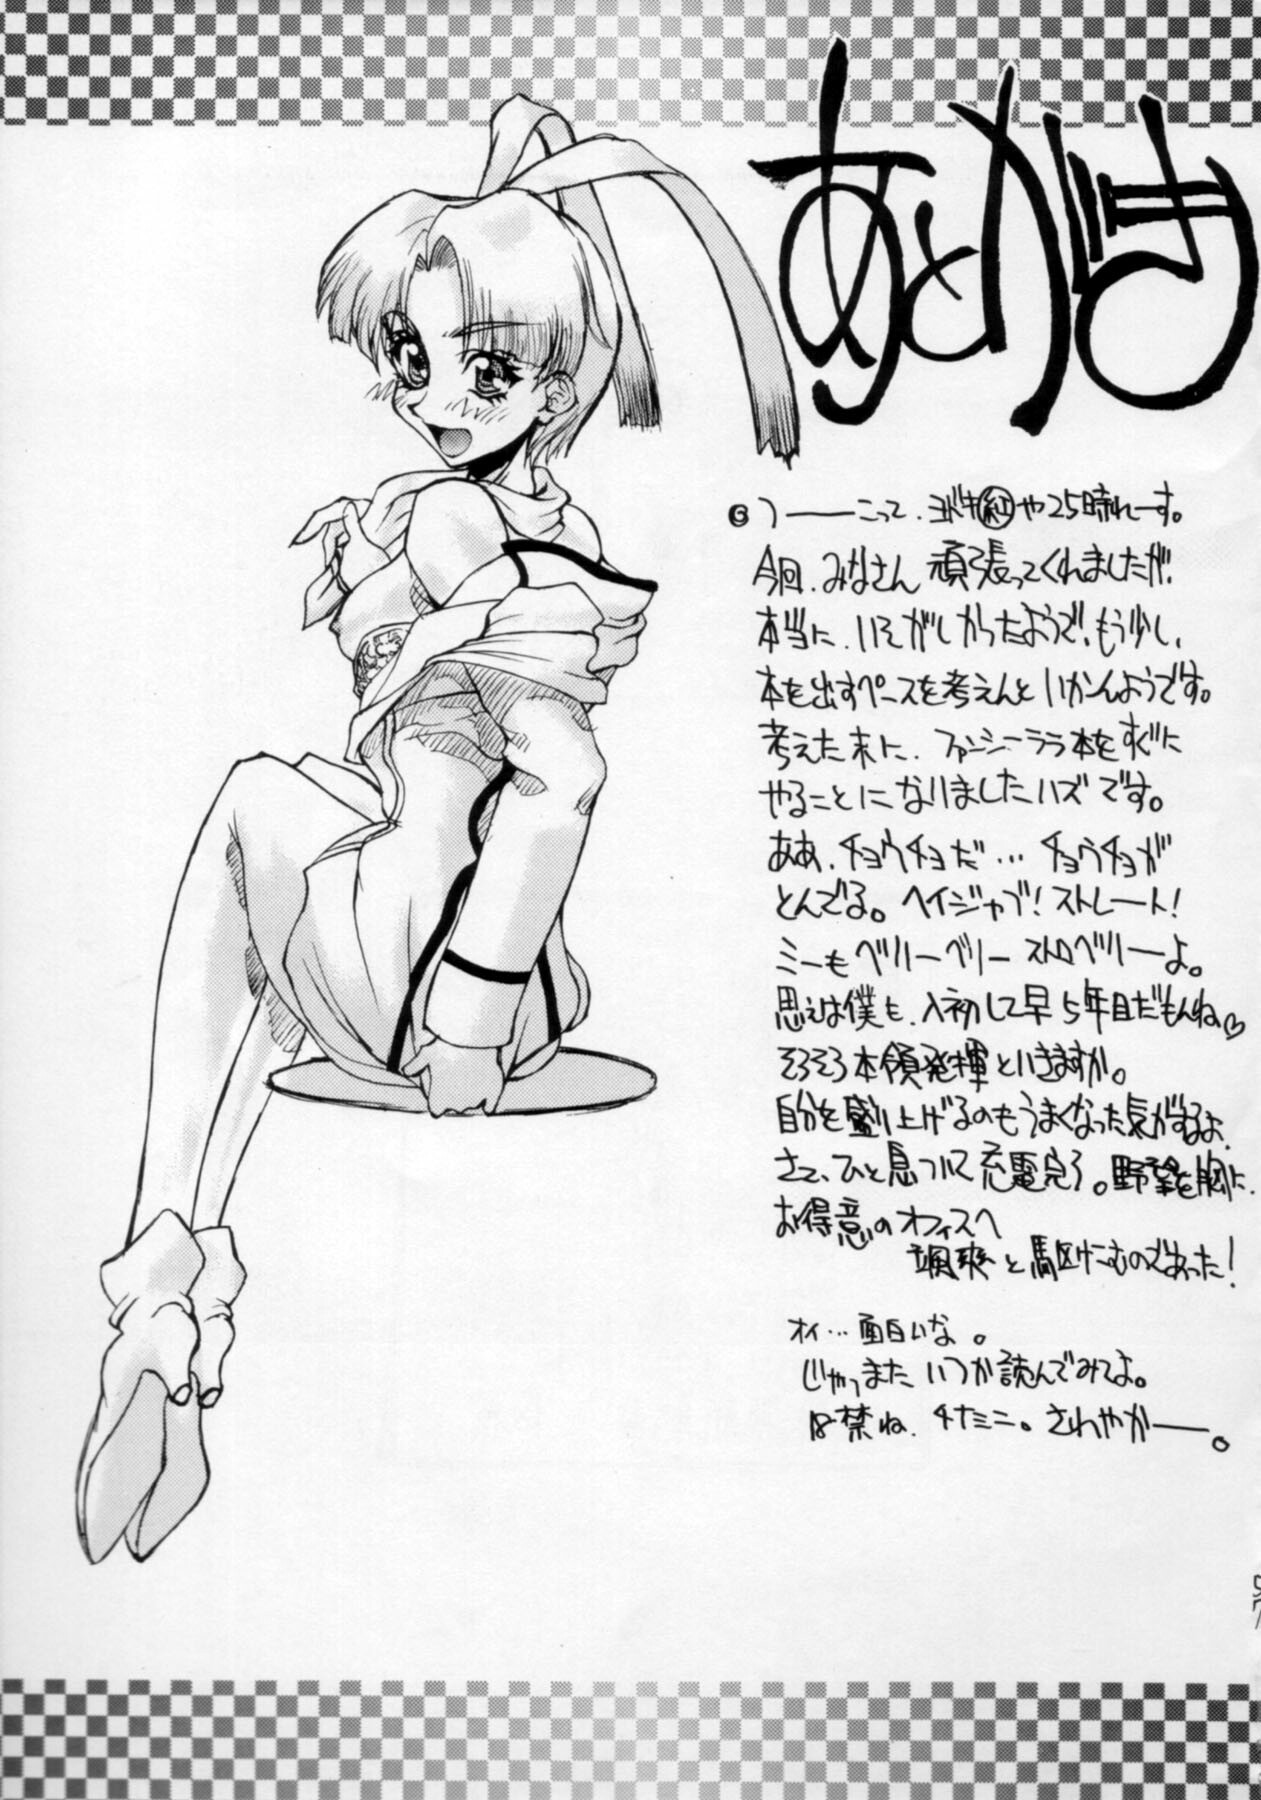 あとがき
つ――こって、ヨドキ紅や25時れーす。
今回、みなさん頑張ってくれましたが、
本当に、いそがしかったようで、もう少し、
本を出すペースを考えんといかんようです。
考えた末に、ファンシーララ本をすぐに
やることになりましたハズです。
ああ、チョウチョだ…チョウチョが
とんでる。ヘイジャブ!ストレート!
ミーもベリーベリーストロベリーよ。
思えば僕も、入初して早5年目だもんね♡
そろそろ本領発揮といきますか。
自分を盛り上げるのもうまくなった気がするよ、
さて、ひと息ついて充電完了。野望を胸に、
お得意のオフィスへ
颯爽と駆けこむのであった!
オイ…面白いな。
じゃっまた いつか読んでみてよ。
18禁ね、チナミニ。さわやかー。
57